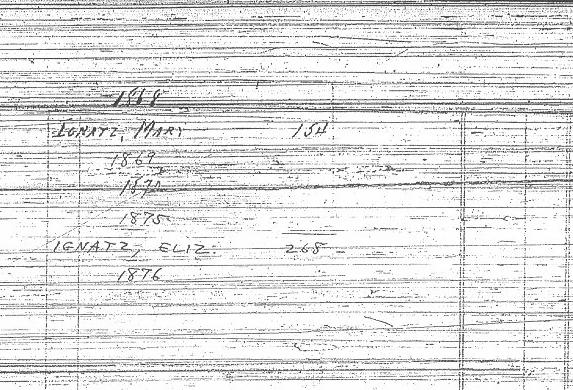 1868
IGNATZ, MARY 154
1869
1870
1875
IGNATZ, ELIZ. 268
1876